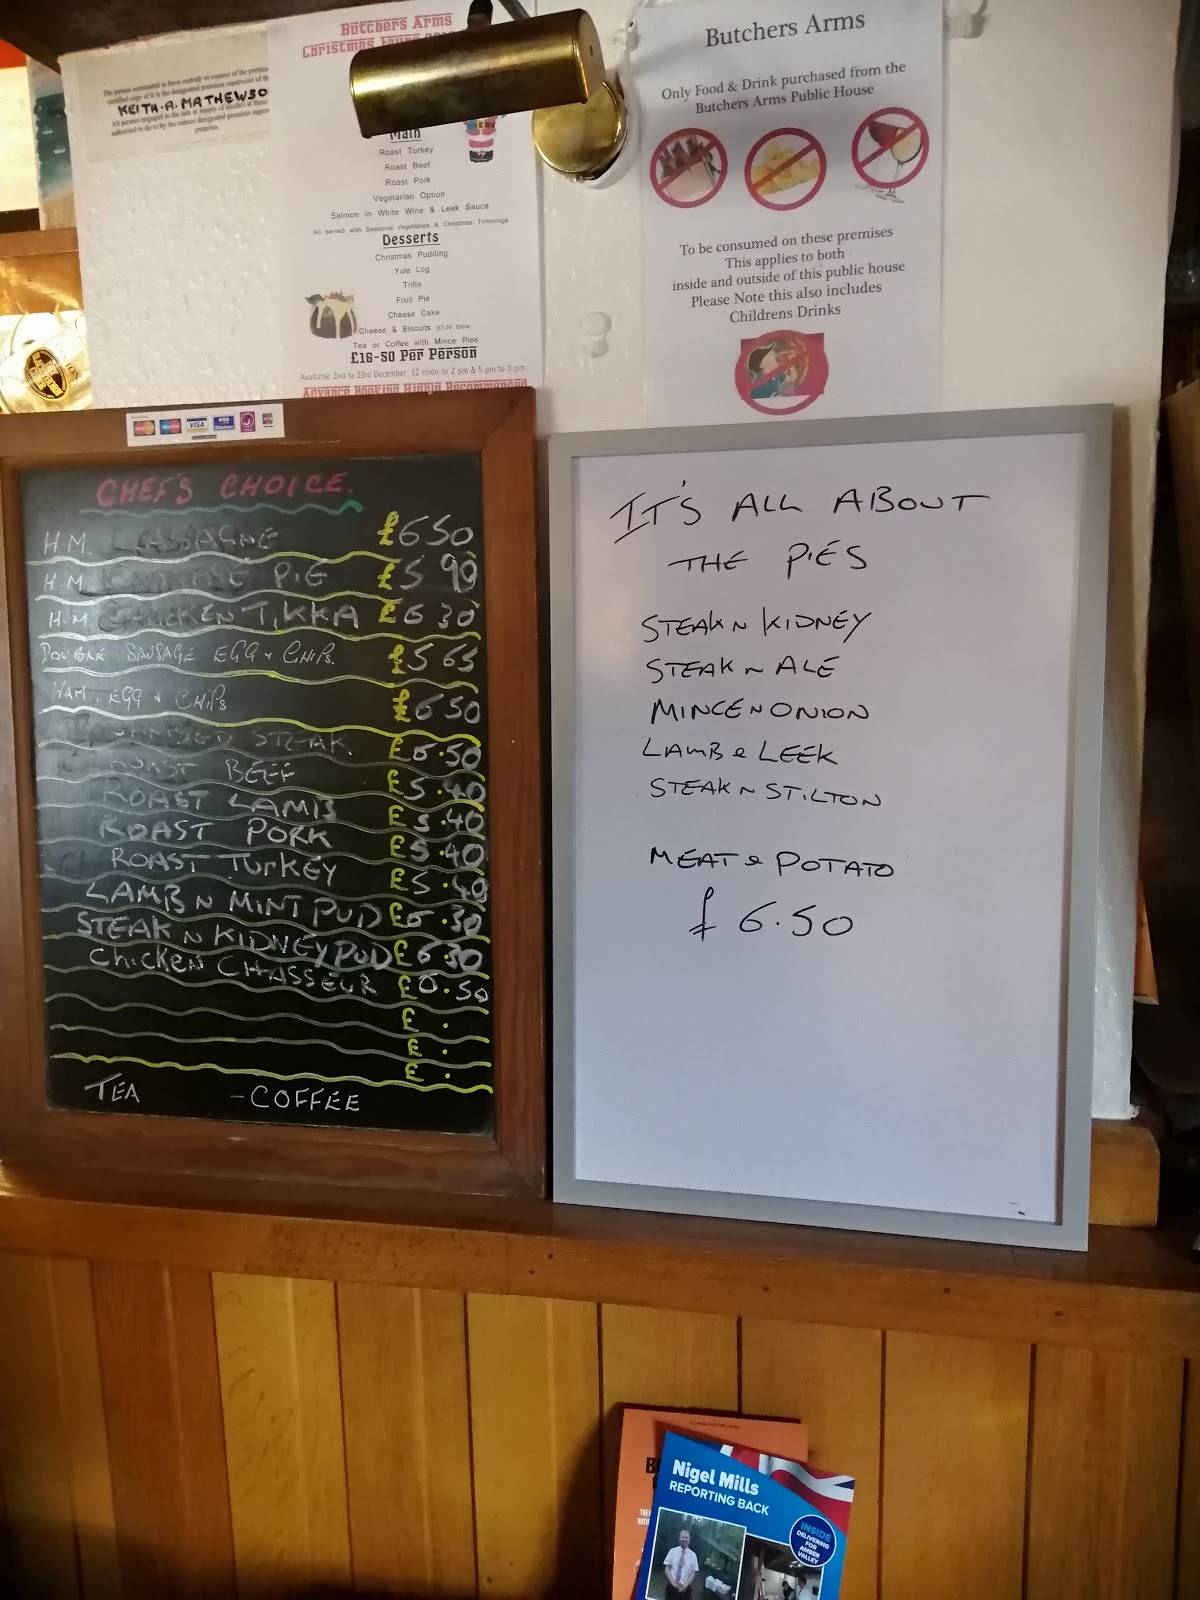 The person nominated to have custody or control of the premises
certified copy of it is the designated premises supervisor of th
KEITH·A·MATHEWSO
premises.
Butchers Arms
Christmas
Main
Roast Turkey
Roast Beef
Roast Pork
Vegetarian Option
Salmon in White Wine & Leek Sauce
All served with Seasonal Vegetables & Christmas Trimmings
Desserts
Christmas Pudding
Yule Log
Trifle
Fruit Pie
Cheese Cake
Cheese & Biscuits (£1.50 Extra)
Tea or Coffee with Mince Pies
£16-50 Per Person
Available 2nd to 23rd December 12 noon to 2 pm & 5 pm to 8 pm
Advance Booking Highly Recommended
Butchers Arms
Only Food & Drink purchased from the
Butchers Arms Public House
To be consumed on these premises
This applies to both
inside and outside of this public house
Please Note this also includes
Childrens Drinks
VISA
CHEF'S CHOICE.
H.M. LASSAGNE £6 50
H.M PIE £5 90
H.M CHICKEN TIKKA £6 30
DOUBLE SAUSAGE EGG & CHIPS. £5 65
HAM, EGG & CHIPS £6 50
STEAK £6.50
ROAST BEEF £5.40
ROAST LAMB £5.40
ROAST PORK £5.40
ROAST TURKEY £5.40
LAMB N MINT PUD £6.30
STEAK N KIDNEY PUD £6 30
CHICKEN CHASSEUR £6.50
£ .
£ .
£ .
TEA - COFFEE
IT'S ALL ABOUT
THE PIES
STEAK N KIDNEY
STEAK N ALE
MINCE N ONION
LAMB & LEEK
STEAK N STILTON
MEAT & POTATO
£ 6.50
Nigel Mills
REPORTING BACK
INSIDE
DELIVERING
FOR
AMBER
VALLEY